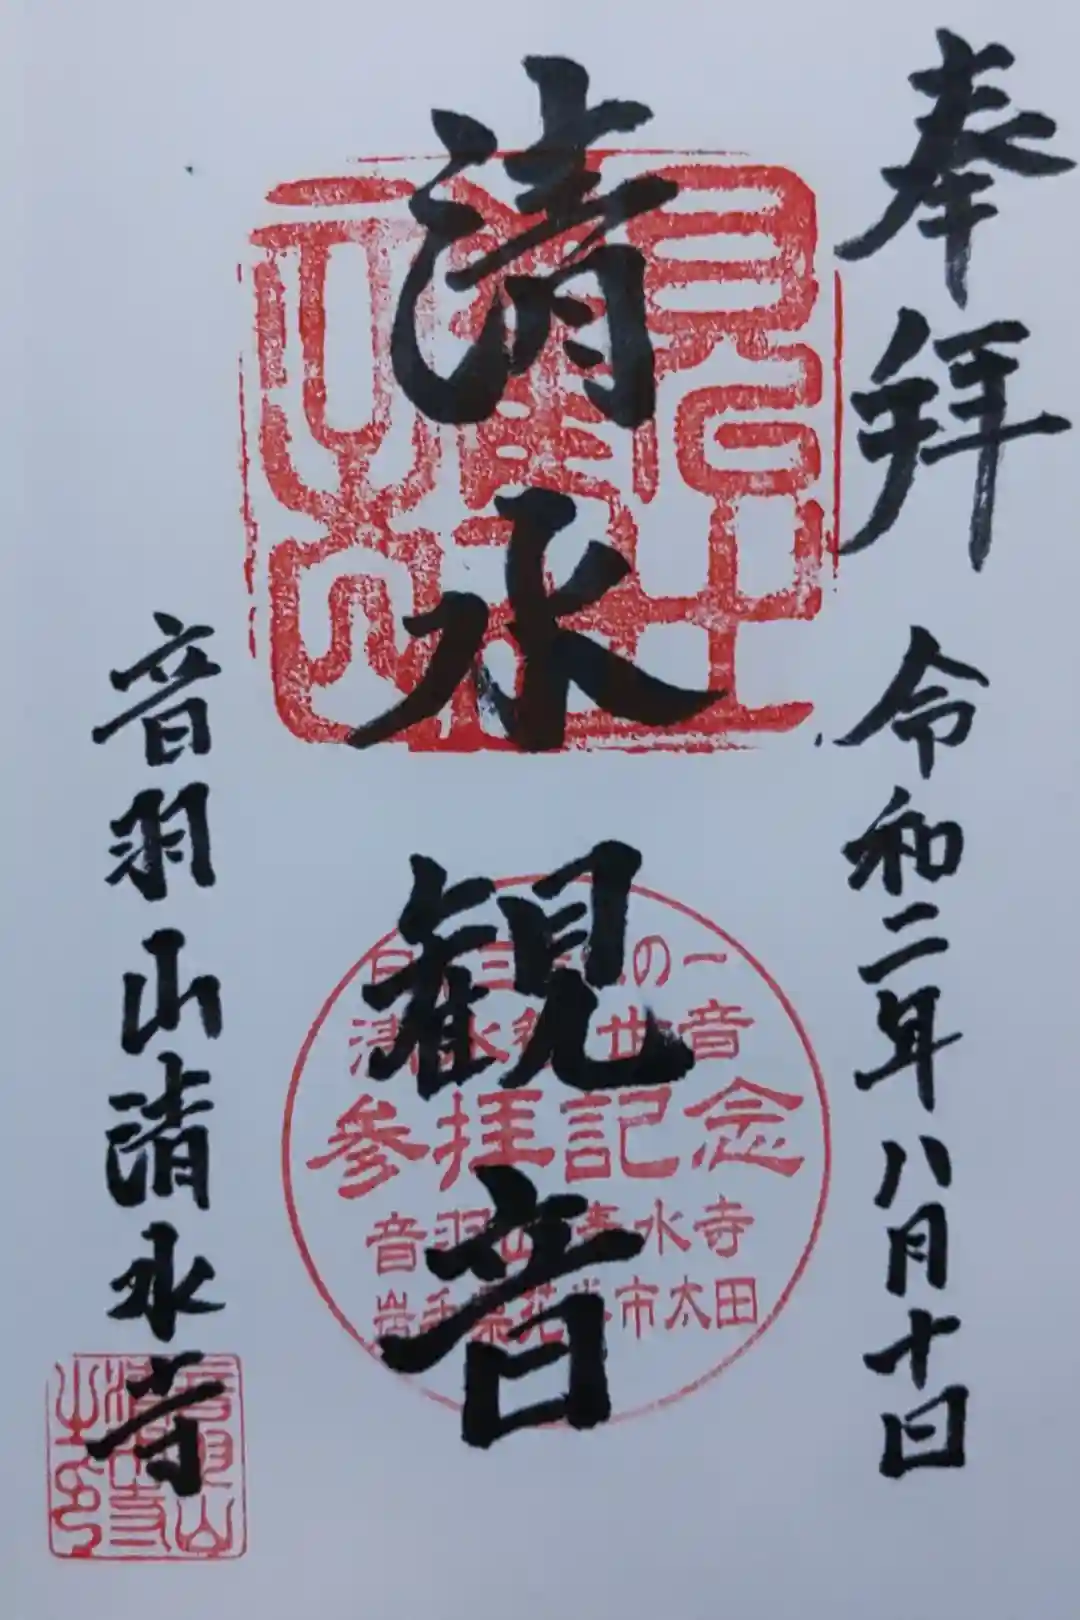 奉拝
令和二年八月十日
清水観音
の一
世音
参拝記念
音羽山清水寺
岩手県花巻市太田
音羽山清水寺